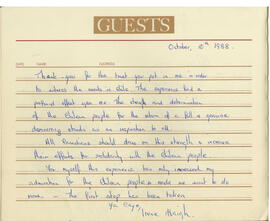 GUESTS
October, 10th 1988.
DATE NAME ADDRESS
Thank-you for the trust you put in me in order
to witness the events in Chile. The experience had a
profound effect upon me. The strength and determination
of the Chilean people for the return of a full & genuine
democracy stands as an inspiration to all.
All Democrats should draw on this strength & increase
their efforts for solidarity with the Chilean people.
For myself this experience has only increased my
admiration for the Chilean people & made me want to do
more. – The first step has been taken